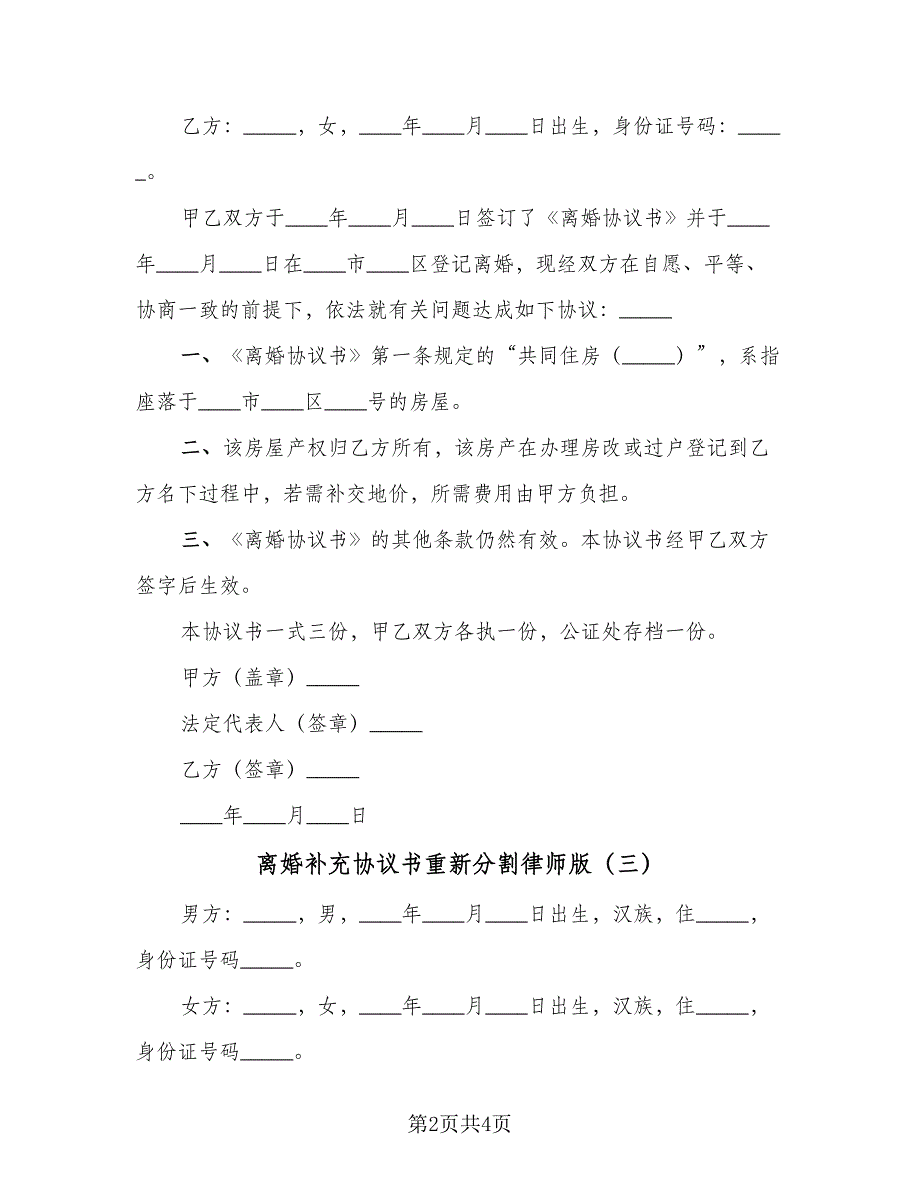 乙方：_____，女，____年____月____日出生，身份证号码：____
_。
甲乙双方于____年____月____日签订了《离婚协议书》并于____
年____月____日在____市____区登记离婚，现经双方在自愿、平等、
协商一致的前提下，依法就有关问题达成如下协议：_____
一、《离婚协议书》第一条规定的“共同住房（_____）”，系指
座落于____市____区____号的房屋。
二、该房屋产权归乙方所有，该房产在办理房改或过户登记到乙
方名下过程中，若需补交地价，所需费用由甲方负担。
三、《离婚协议书》的其他条款仍然有效。本协议书经甲乙双方
签字后生效。
本协议书一式三份，甲乙双方各执一份，公证处存档一份。
甲方（盖章）_____
法定代表人（签章）_____
乙方（签章）_____
____年____月____日
离婚补充协议书重新分割律师版（三）
男方：_____，男，____年____月____日出生，汉族，住_____，
身份证号码_____。
女方：_____，女，____年____月____日出生，汉族，住_____，
身份证号码_____。
第2页共4页